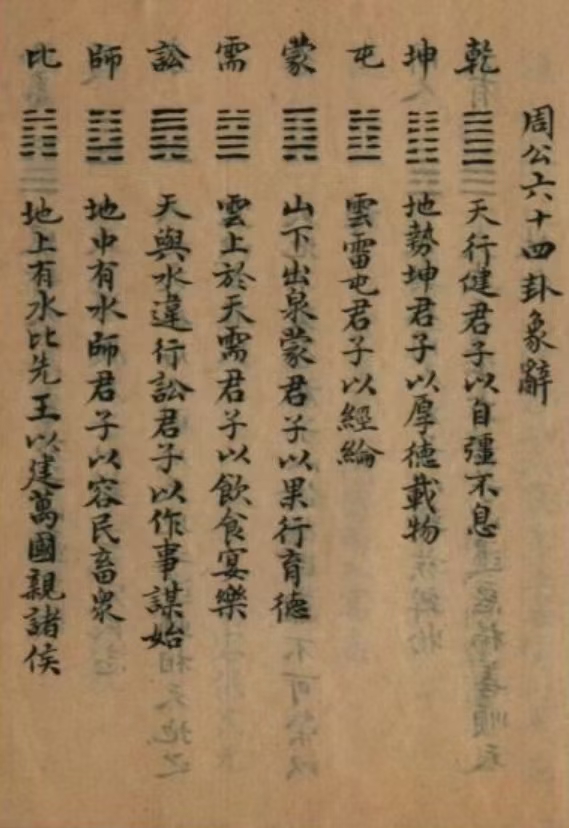 周公六十四卦象辭
乾 ䷀ 天行健君子以自彊不息
坤 ䷁ 地勢坤君子以厚德載物
屯 ䷂ 雲雷屯君子以經綸
蒙 ䷃ 山下出泉蒙君子以果行育德
需 ䷄ 雲上於天需君子以飲食宴樂
訟 ䷅ 天與水違行訟君子以作事謀始
師 ䷆ 地中有水師君子以容民畜衆
比 ䷇ 地上有水比先王以建萬國親諸侯